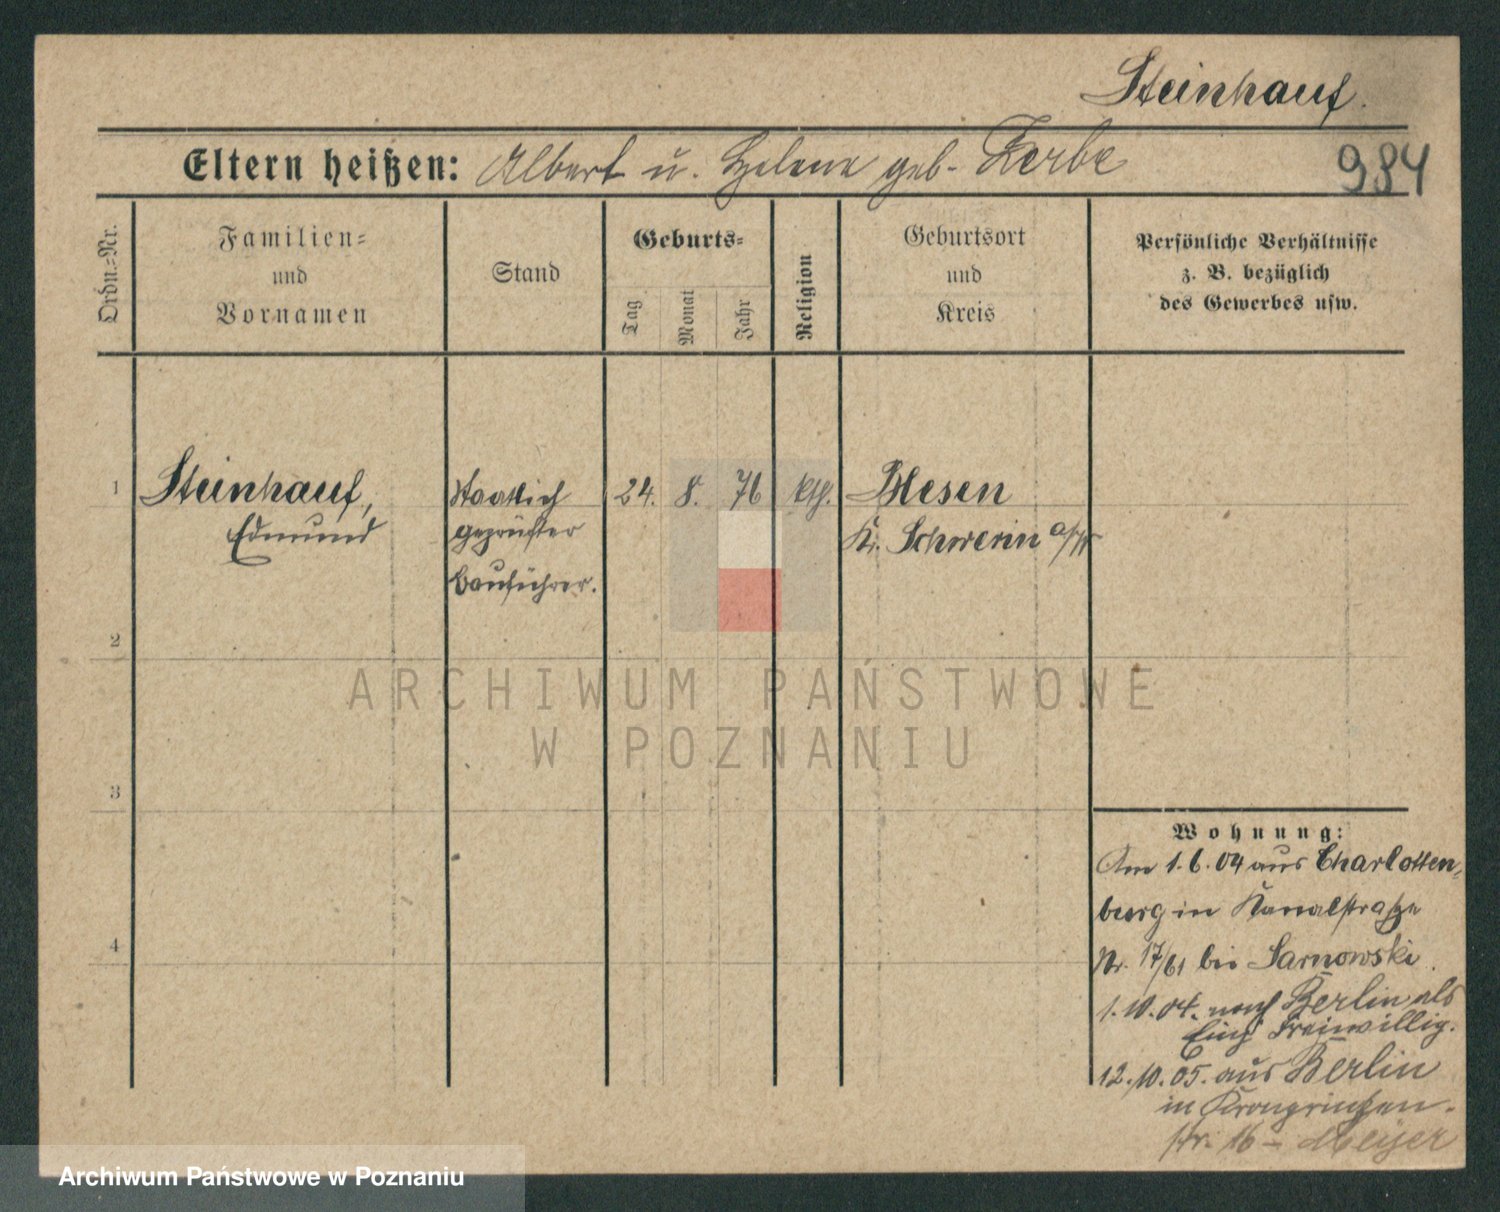 Steinhauf.
Eltern heißen: Albert u. Helene geb. Zerbe
984
Ordn.-Nr.
Familien-
und
Vornamen
Stand
Geburts-
Tag
Monat
Jahr
Religion
Geburtsort
und
Kreis
Persönliche Verhältnisse
z. B. bezüglich
des Gewerbes usw.
1
Steinhauf,
Edmund
Staatlich
geprüfter
Bauführer.
24. 8. 76 kth.
Blesen
Kr. Schwerin a/W
2
3
4
Wohnung:
Am 1.6.04 aus Charlotten-
burg in Kanalstraße
Nr. 17/61 bei Sarnowski.
1.10.04. nach Berlin als
Einj Freiwillig.
12.10.05. aus Berlin
in Kronprinzen-
str. 16 - Meyer
ARCHIWUM PAŃSTWOWE
W POZNANIU
Archiwum Państwowe w Poznaniu